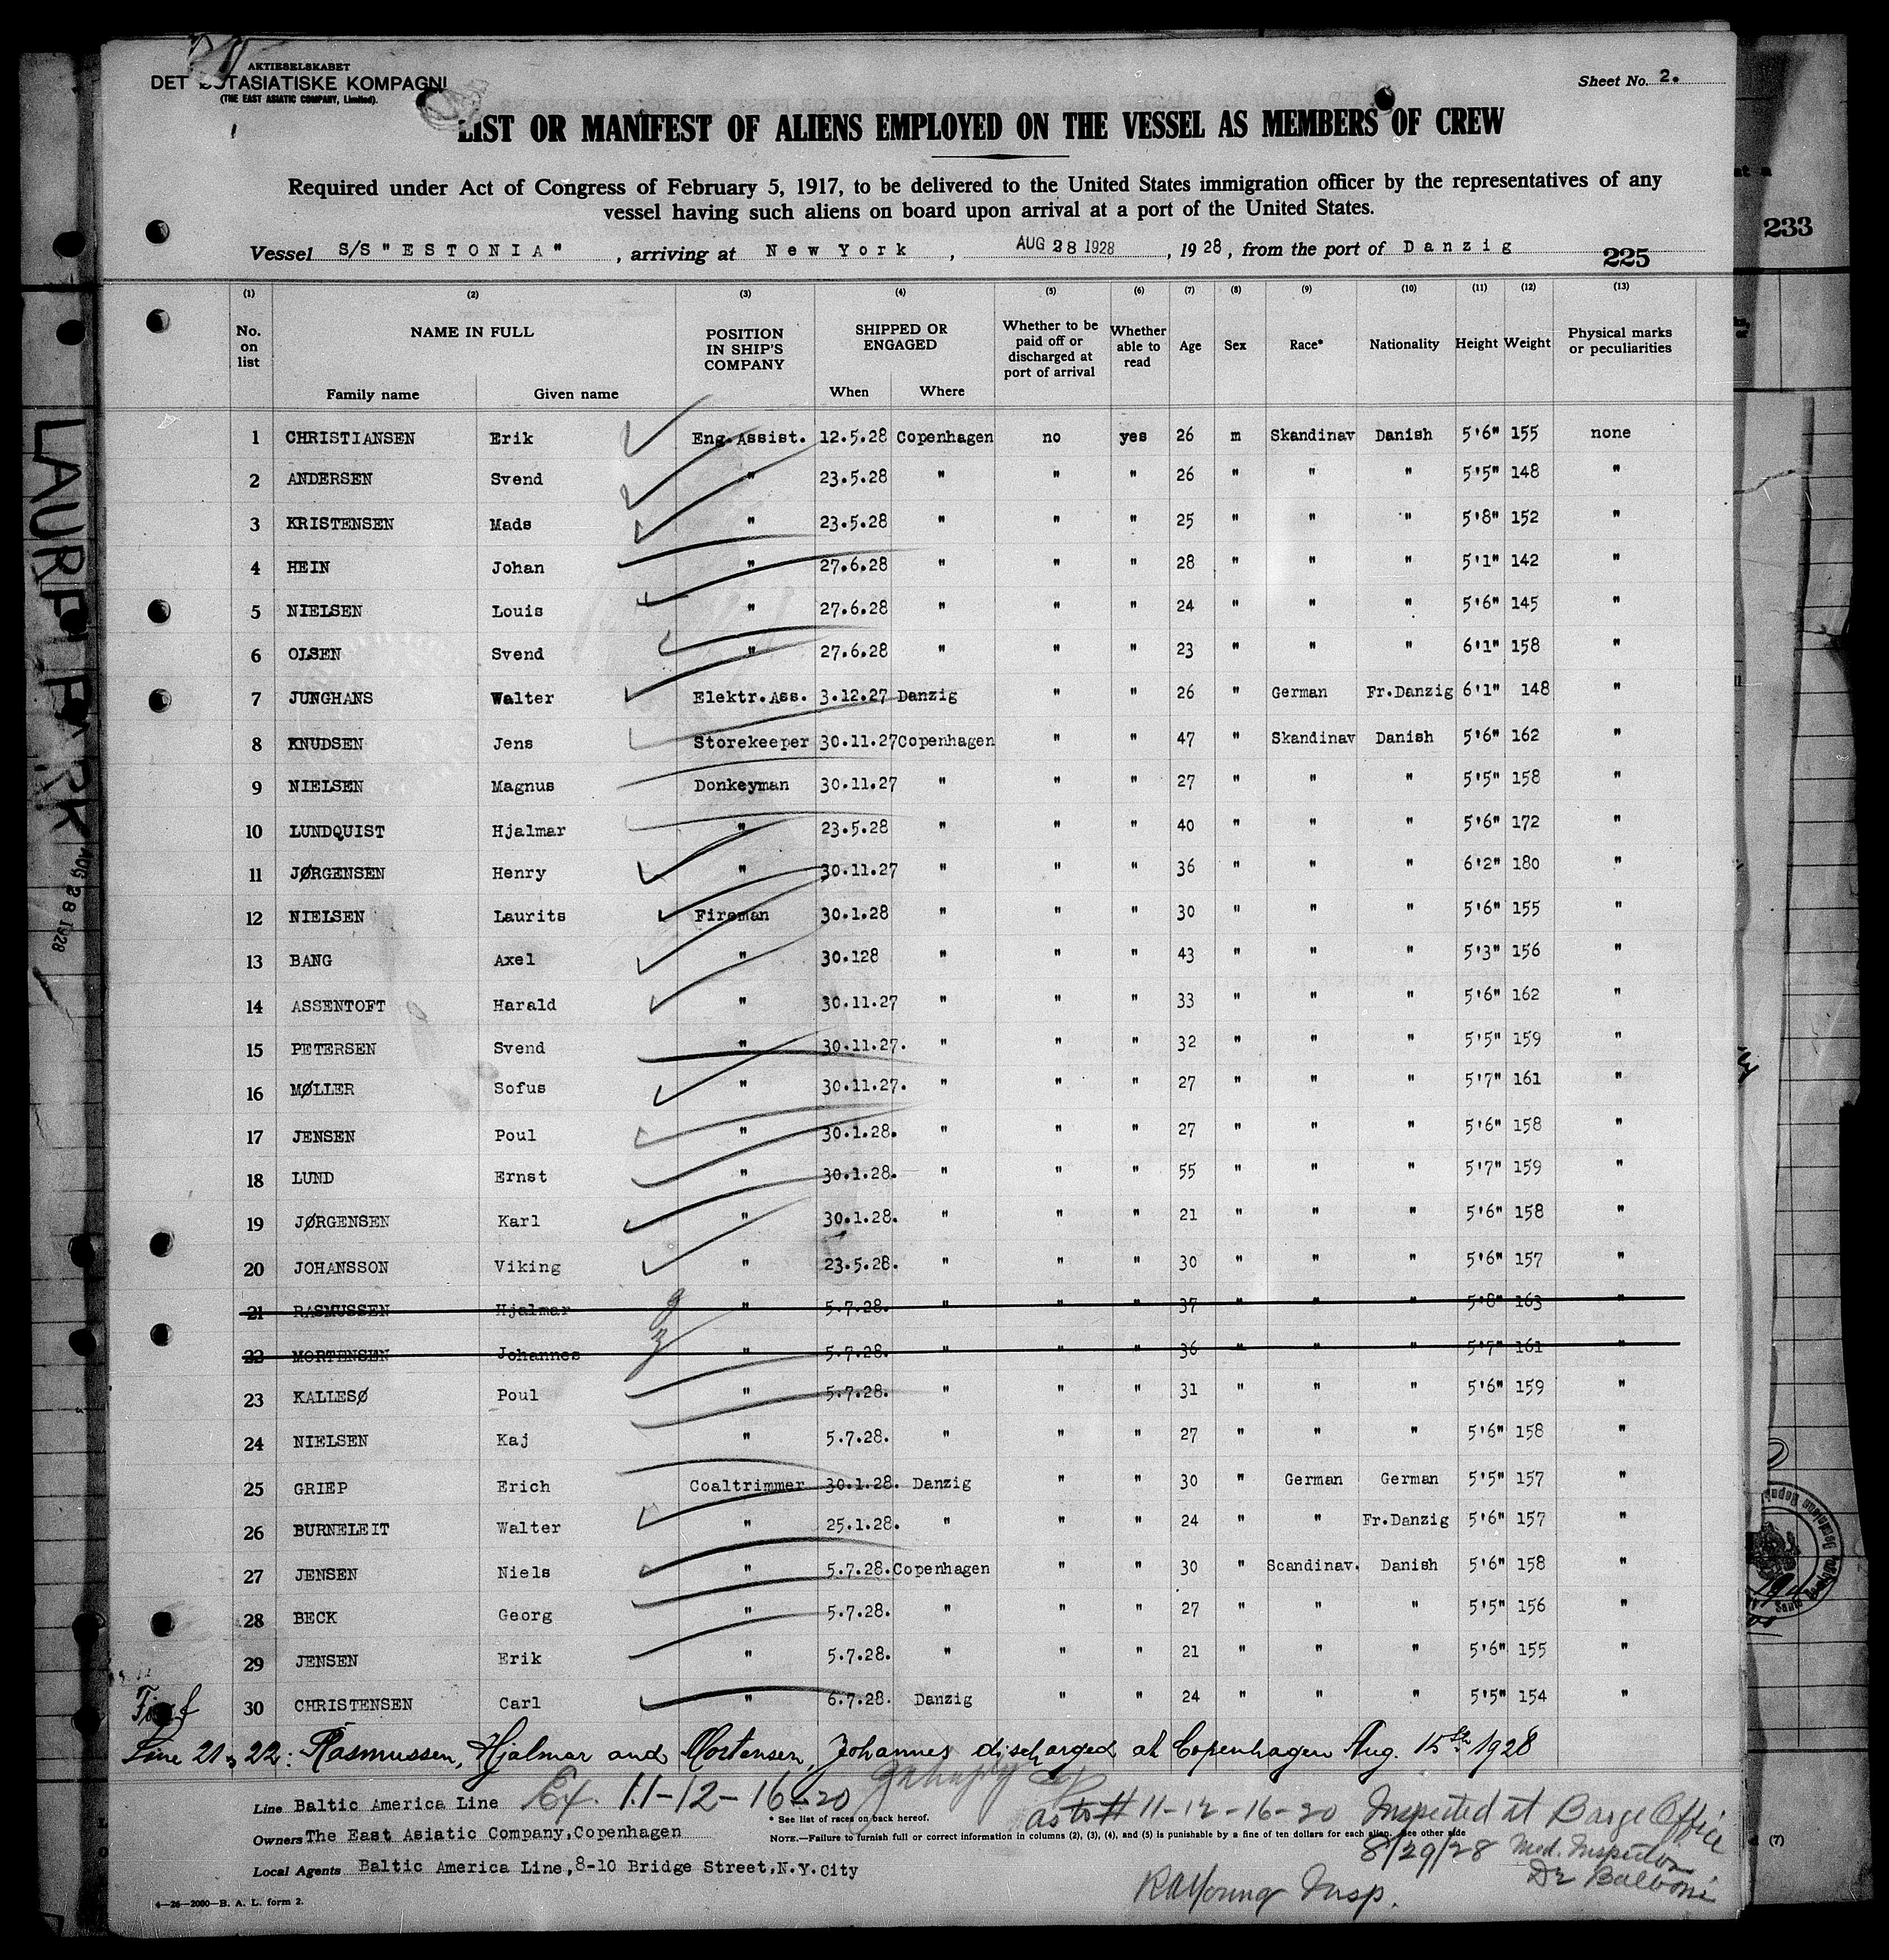 AKTIESELSKABET
DET ØSTASIATISKE KOMPAGNI
(THE EAST ASIATIC COMPANY, Limited).
Sheet No. 2.
LIST OR MANIFEST OF ALIENS EMPLOYED ON THE VESSEL AS MEMBERS OF CREW
Required under Act of Congress of February 5, 1917, to be delivered to the United States immigration officer by the representatives of any
vessel having such aliens on board upon arrival at a port of the United States.
233
Vessel S/S "ESTONIA", arriving at New York, AUG 28 1928, 1928, from the port of Danzig 225
(1) (2) (3) (4) (5) (6) (7) (8) (9) (10) (11) (12) (13)
No. on list NAME IN FULL Family name Given name POSITION IN SHIP'S COMPANY SHIPPED OR ENGAGED When Where Whether to be paid off or discharged at port of arrival Whether able to read Age Sex Race* Nationality Height Weight Physical marks or peculiarities
1 CHRISTIANSEN Erik Eng.Assist. 12.5.28 Copenhagen no yes 26 m Skandinav Danish 5'6" 155 none
2 ANDERSEN Svend " 23.5.28 " " " 26 " " " 5'5" 148 "
3 KRISTENSEN Mads " 23.5.28 " " " 25 " " " 5'8" 152 "
4 HEIN Johan " 27.6.28 " " " 28 " " " 5'1" 142 "
5 NIELSEN Louis " 27.6.28 " " " 24 " " " 5'6" 145 "
6 OLSEN Svend " 27.6.28 " " " 23 " " " 6'1" 158 "
7 JUNGHANS Walter Elektr.Ass. 3.12.27 Danzig " " 26 " German Fr.Danzig 6'1" 148 "
8 KNUDSEN Jens Storekeeper 30.11.27 Copenhagen " " 47 " Skandinav Danish 5'6" 162 "
9 NIELSEN Magnus Donkeyman 30.11.27 " " " 27 " " " 5'5" 158 "
10 LUNDQUIST Hjalmar " 23.5.28 " " " 40 " " " 5'6" 172 "
11 JØRGENSEN Henry " 30.11.27 " " " 36 " " " 6'2" 180 "
12 NIELSEN Laurits Fireman 30.1.28 " " " 30 " " " 5'6" 155 "
13 BANG Axel " 30.128 " " " 43 " " " 5'3" 156 "
14 ASSENTOFT Harald " 30.11.27 " " " 33 " " " 5'6" 162 "
15 PETERSEN Svend " 30.11.27. " " " 32 " " " 5'5" 159 "
16 MØLLER Sofus " 30.11.27. " " " 27 " " " 5'7" 161 "
17 JENSEN Poul " 30.1.28. " " " 27 " " " 5'6" 158 "
18 LUND Ernst " 30.1.28. " " " 55 " " " 5'7" 159 "
19 JØRGENSEN Karl " 30.1.28. " " " 21 " " " 5'6" 158 "
20 JOHANSSON Viking " 23.5.28. " " " 30 " " " 5'6" 157 "
21 RASMUSSEN Hjalmar " 5.7.28. " " " 37 " " " 5'8" 163 "
22 MORTENSEN Johannes " 5.7.28. " " " 36 " " " 5'7" 161 "
23 KALLESØ Poul " 5.7.28. " " " 31 " " " 5'6" 159 "
24 NIELSEN Kaj " 5.7.28. " " " 27 " " " 5'6" 158 "
25 GRIEP Erich Coaltrimmer 30.1.28. Danzig " " 30 " German German 5'5" 157 "
26 BURNELEIT Walter " 25.1.28. " " " 24 " " Fr.Danzig 5'6" 157 "
27 JENSEN Niels " 5.7.28. Copenhagen " " 30 " Scandinav. Danish 5'6" 158 "
28 BECK Georg " 5.7.28. " " " 27 " " " 5'5" 156 "
29 JENSEN Erik " 5.7.28. " " " 21 " " " 5'6" 155 "
30 CHRISTENSEN Carl " 6.7.28. Danzig " " 24 " " " 5'5" 154 "
Line 21 & 22: Rasmussen, Hjalmar and Mortensen, Johannes discharged at Copenhagen Aug. 15th 1928
Line Baltic America Line Ex. 11-12-16-20
* See list of races on back hereof.
as to # 11-12-16-20 Inspected at Barge Office
Owners The East Asiatic Company, Copenhagen
NOTE.—Failure to furnish full or correct information in columns (2), (3), (4), and (5) is punishable by a fine of ten dollars for each alien. See other side
8/29/28 Med. Inspector
Dr Balboni
Local Agents Baltic America Line, 8-10 Bridge Street, N.Y. City
RAYoung Insp.
4—26—2000—B. A. L. form 2.
AUG 28 1928
(7)